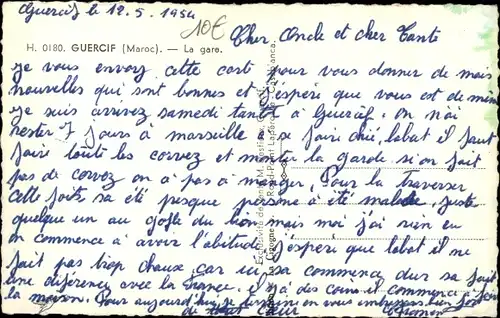 Guercif le 12.5.1954
10€
Cher Oncle et cher Tante
H. 0180. GUERCIF (Maroc). — La gare.
je vous envoy cette cart pour vous donner de mais
nouvelles qui sont bonnes et j'espére que vous est de même
je suis arrivez samedi tantot a Guercif. on n'ai
rester 7 jours a marseille a se faire chié, labat il faut
faire toute les corvez et monter la garde si on fait
pas de corvez on a pas a manger, Pour la traverser
cette fois sa été presque personne a été malade, juste
quelque un au golfe du lion mais moi j'ai rien eu
on commence a avoir l'abitude j'espéré que labat il ne
fait pas trop chause, car ici sa commence dur sa fait
une différence avec la France. il y a des coins et commence a
la maison. Pour aujourd'hui je termine en vous embrassant bien fort
de tout cœur